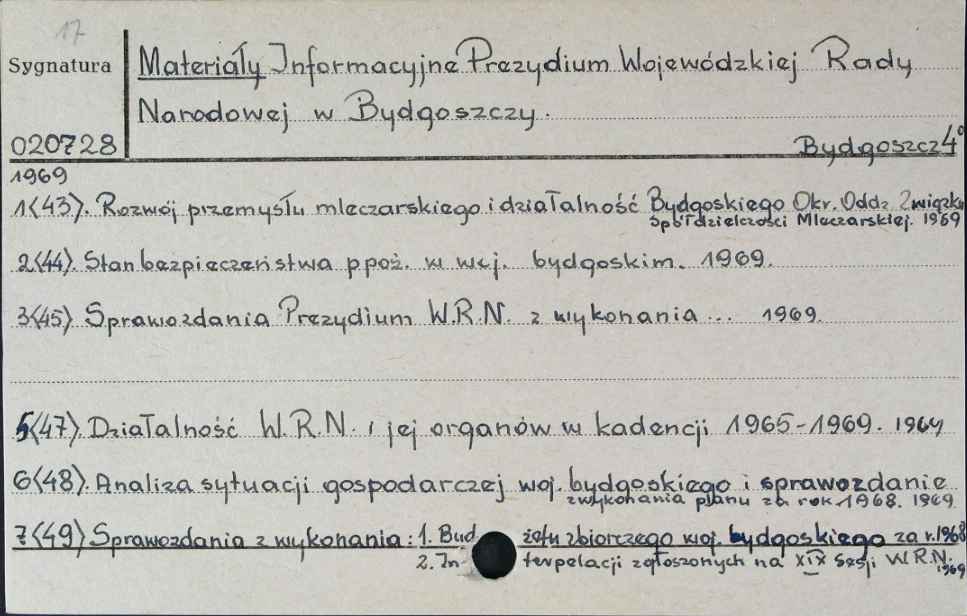 17
Sygnatura
Materiały Informacyjne Prezydium Wojewódzkiej Rady
Narodowej w Bydgoszczy.
020728
Bydgoszcz 4°
1969
1(43). Rozwój przemysłu mleczarskiego i działalność Bydgoskiego Okr. Oddz. Związku
Spółdzielczości Mleczarskiej. 1969
2(44). Stan bezpieczeństwa p poż. w woj. bydgoskim. 1969.
3(45) Sprawozdania Prezydium W.R.N. z wykonania ... 1969.
5(47). Działalność W.R.N. i jej organów w kadencji 1965-1969. 1969
6(48). Analiza sytuacji gospodarczej woj. bydgoskiego i sprawozdanie
z wykonania planu za rok 1968. 1969.
7(49) Sprawozdania z wykonania: 1. Bud żetu zbiorczego woj. bydgoskiego za r. 1968
2. In- terpelacji zgłoszonych na XIX Sesji W.R.N. 1969